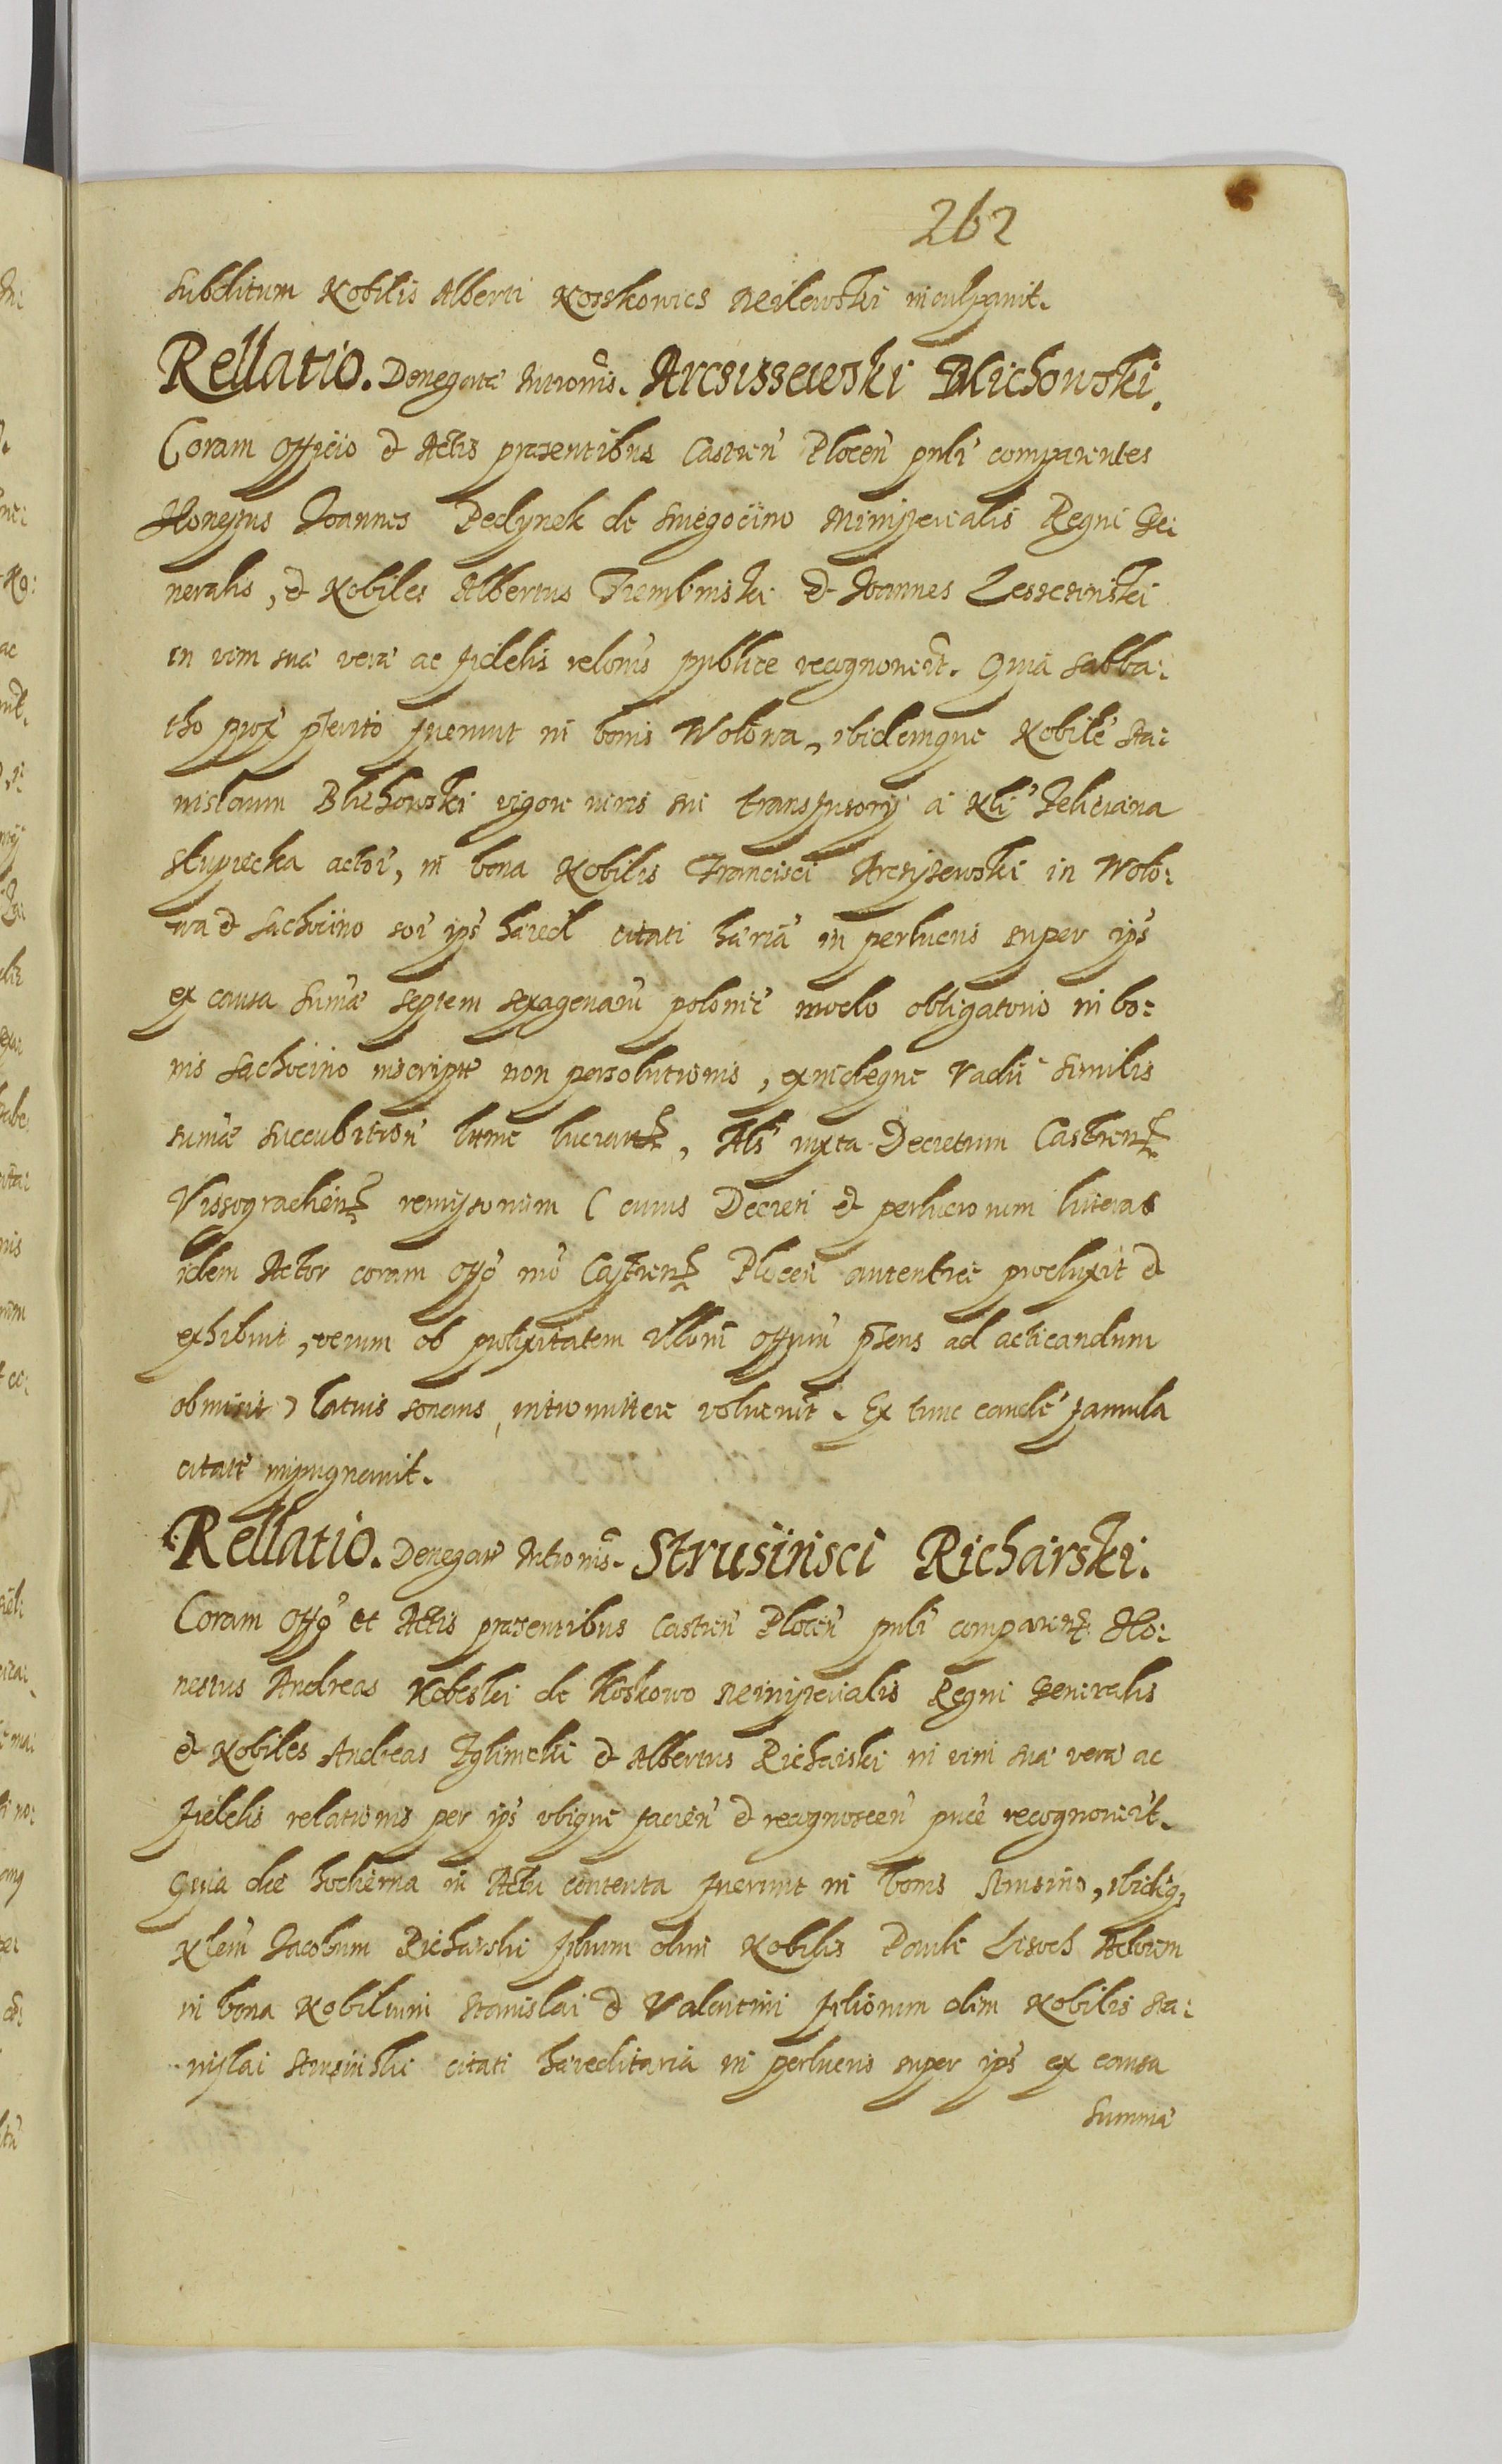 262
subditum Nobilis Alberti Kosskowics Meilewski inculpavit.
Rellatio. Denegatæ Intromis. Arcsissewski Blichowski.
Coram Officio et Actis præsentibus Castren Plocen puli comparentes
Honestus Joannes Pedynek de Smegocino Ministerialis Regni Ge:
neralis, et Nobiles Albertus Trembinski et Joannes Lessczinski
in vim suæ veræ ac fidelis relonis publice recognoverut. Quia sabba:
tho prox pterito fuerunt in bonis Wolowa, ibidemque Nobile Sta:
nislaum Blichowski vigore iuris sui transfusorij a Nli Feliciana
Skupiecka actore, in bona Nobilis Francisci Arcsijsewski in Wolo:
wa et Sachocino sor ips hæred citati hæria in perlucris super ips
ex causa Sumæ septem sexagenaru polonic modo obligatorio in bo:
nis Sachocino inscripte non persolutionis, exindeque Vadii similis
sumæ succubition lume lucrat, Als iuxta Decretum Castren
Vissogradien remissorium ( cuius Decreti et perlucrorum literas
idem Actor coram offo mo Castren Plocen autentice produxit et
exhibuit, verum ob prolixitatem illoru offium psens ad acticandum
obmisit ) latius sonans, intromittere voluerut. Ex tunc eande famula
citati impugnavit.
Rellatio. Denegatæ Intromis. Strusiinsci Richarski.
Coram Offo et Actis præsentibus Castren Plocen puli comparen Ho:
nestus Andreas Kobeski de Koskowo Ministerialis Regni Generalis
et Nobiles Andreas Zglinicki et Albertus Richarski in vim suæ veræ ac
fidelis relationis per ips ubique facien et recognoscen puce recognoverut.
Quia die hodierna in Actu contenta fuerunt in bonis Strusino, ibideq
Nlem Jacobum Richarski filium olim Nobilis Pauli Lisoch Actorem
in bona Nobilium Stanislai et Valentini filiorum olim Nobilis Sta:
nislai Strusinski citati hæreditaria in perlucris super ips ex causa
Summæ